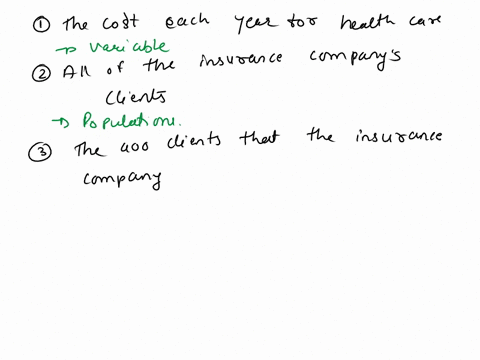 ① The cost each year for health care
→ variable
② All of the insurance company's
clients
→ Population.
③ The 400 clients that the insurance
company